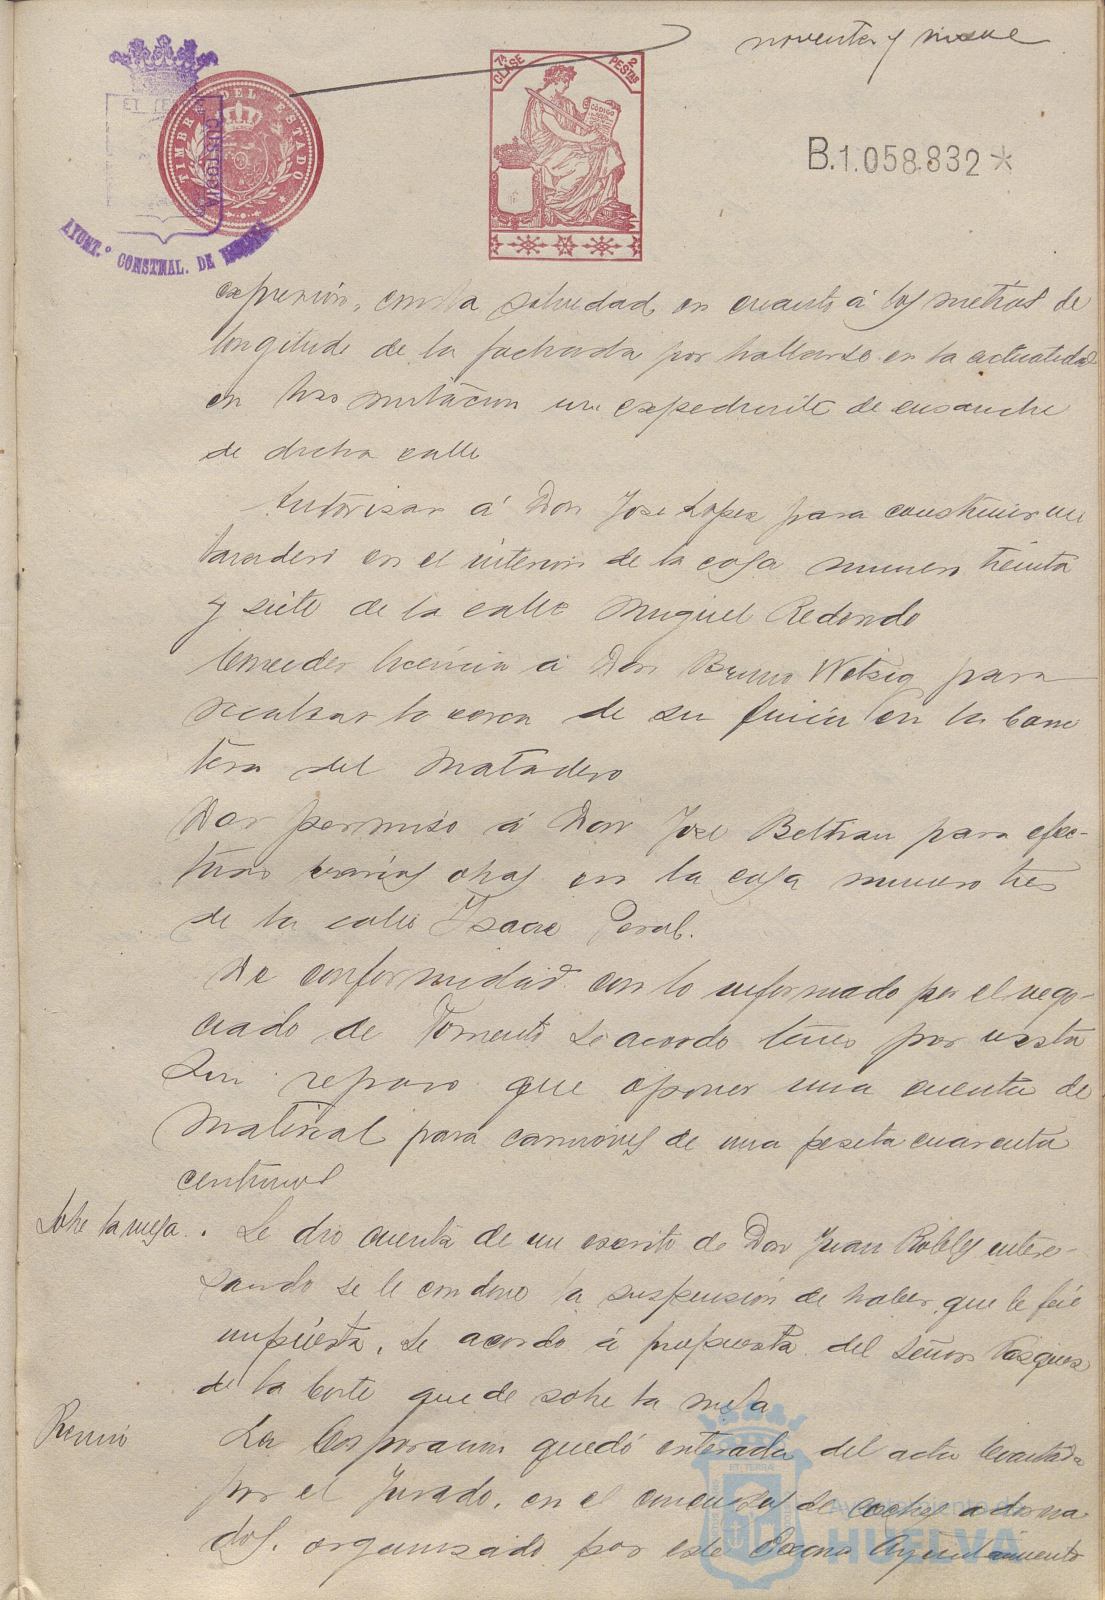 noventa y nueve
7ª CLASE
2 PESTAS
CÓDIGO
TIMBRE DEL ESTADO
CUSTODIA
AYUNT.º CONSTNAL. DE HUELVA
B.1.058.832*
expresión, con la salvedad en cuanto á los metros de
longitud de la fachada por hallarse en la actualidad
en tramitacion un expediente de ensanche
de dicha calle
Autorisar á Don Jose Lopez para construir un
lavadero en el interior de la casa numero treinta
y siete de la calle Miguel Redondo
Conceder licencia á Don Bruno Wetzig para
realzar la cerca de su finca en la Carre
tera del Matadero
Dar permiso á Don Jose Beltran para efec-
tuar varias obras en la casa numero tres
de la calle Isaac Peral.
De conformidad con lo informado por el nego-
ciado de Fomento se acordo tener por vista
sin reparo que oponer una cuenta de
material para camiones de una peseta cuarenta
centimos
Sobre la mesa. Se dio cuenta de un escrito de Don Juan Robles intere-
sando se le condone la suspensión de haber que le fué
impuesta. Se acordo á propuesta del Señor Vasques
de la Corte quede sobre la mesa
La Corporacion quedó enterada del acta levantada
por el Jurado, en el concurso de coches adorna
dos, organisado por este Excmo Ayuntamiento
Ayuntamiento de
HUELVA